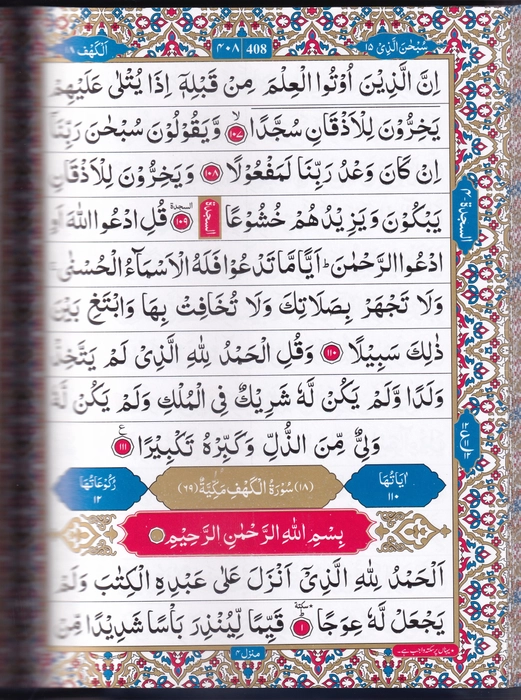 اَلْكَهْف ١٨
٤٠٨ 408
سُبْحٰنَ الَّذِىْ ١٥
اِنَّ الَّذِيْنَ اُوْتُوا الْعِلْمَ مِنْ قَبْلِهٖٓ اِذَا يُتْلٰى عَلَيْهِمْ
يَخِرُّوْنَ لِلْاَذْقَانِ سُجَّدًا ۙ ١٠٧ وَّيَقُوْلُوْنَ سُبْحٰنَ رَبِّنَاۤ
اِنْ كَانَ وَعْدُ رَبِّنَا لَمَفْعُوْلًا ١٠٨ وَيَخِرُّوْنَ لِلْاَذْقَانِ
يَبْكُوْنَ وَيَزِيْدُهُمْ خُشُوْعًا السجدة ١٠٩ السجدة قُلِ ادْعُوا اللّٰهَ اَوِ
ادْعُوا الرَّحْمٰنَ ؕ اَيًّا مَّا تَدْعُوْا فَلَهُ الْاَسْمَآءُ الْحُسْنٰى ۚ
وَلَا تَجْهَرْ بِصَلَاتِكَ وَلَا تُخَافِتْ بِهَا وَابْتَغِ بَيْنَ
ذٰلِكَ سَبِيْلًا ١١٠ وَقُلِ الْحَمْدُ لِلّٰهِ الَّذِىْ لَمْ يَتَّخِذْ
وَلَدًا وَّلَمْ يَكُنْ لَّهٗ شَرِيْكٌ فِى الْمُلْكِ وَلَمْ يَكُنْ لَّهٗ
وَلِىٌّ مِّنَ الذُّلِّ وَكَبِّرْهُ تَكْبِيْرًا ع ١١١
اٰيَاتُهَا ١١٠
(١٨) سُوْرَةُ الْكَهْفِ مَكِّيَّةٌ (٦٩)
رُكُوْعَاتُهَا ١٢
بِسْمِ اللّٰهِ الرَّحْمٰنِ الرَّحِيْمِ
اَلْحَمْدُ لِلّٰهِ الَّذِىْۤ اَنْزَلَ عَلٰى عَبْدِهِ الْكِتٰبَ وَلَمْ
يَجْعَلْ لَّهٗ عِوَجًا ؕ سكتة ١ قَيِّمًا لِّيُنْذِرَ بَاْسًا شَدِيْدًا مِّنْ
السجدة ٤
ع ١٢
منزل ٤
• یہاں پر سکتہ واجب ہے۔